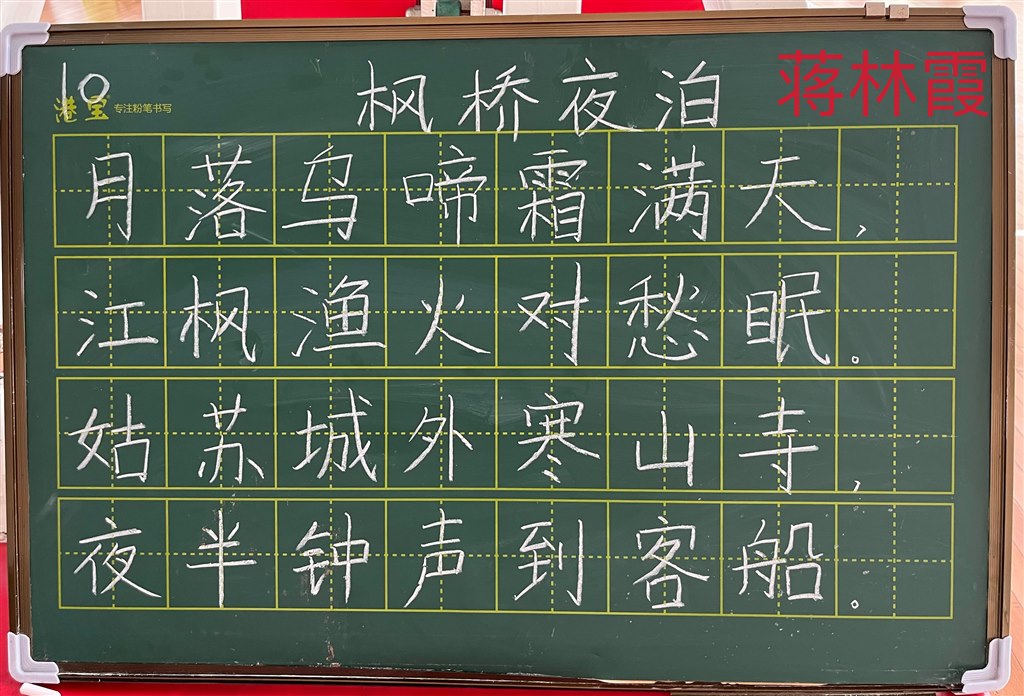 10
港宝 专注粉笔书写
枫桥夜泊
蒋林霞
月落乌啼霜满天，
江枫渔火对愁眠。
姑苏城外寒山寺，
夜半钟声到客船。